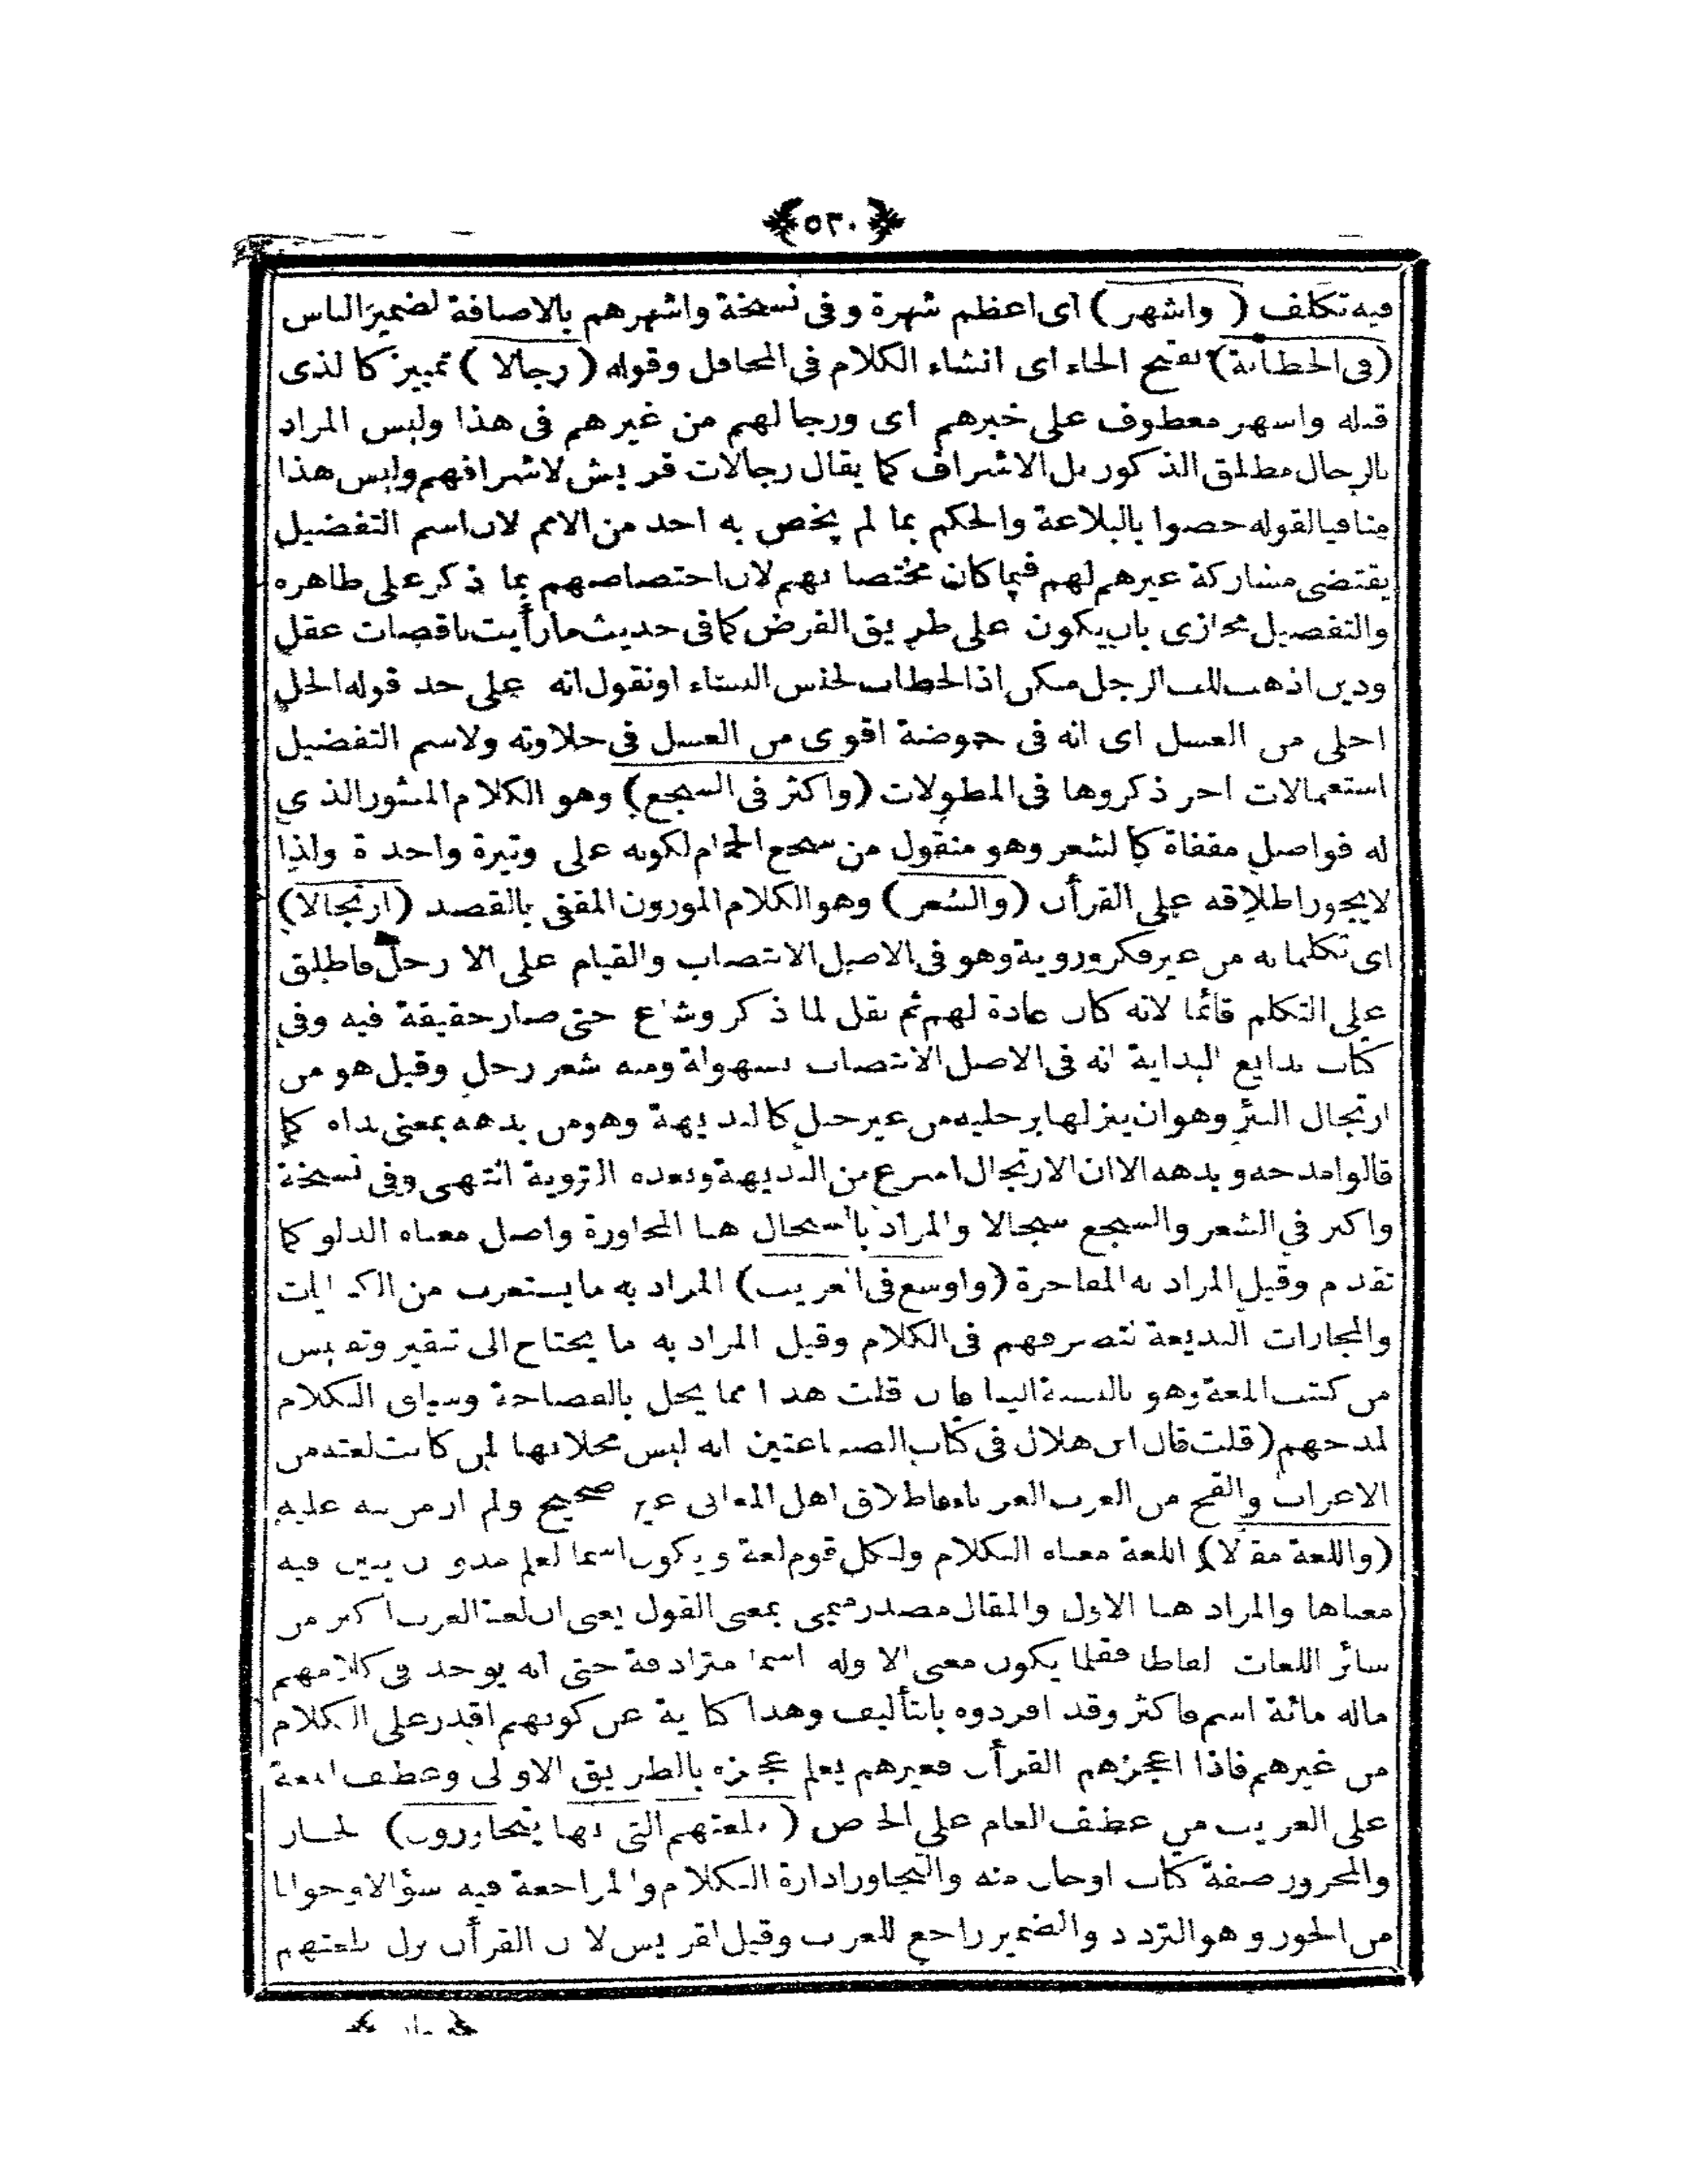 ﴿٥٣٠﴾
فيه تكلف ( واشهر ) اى اعظم شهرة وفى نسخة واشهرهم بالاضافة لضمير الناس
(فى الخطابة) بفتح الخاء اى انشاء الكلام فى المحافل وقوله ( رجالا ) تمييز كالذى
قبله واشهر معطوف على خبرهم اى ورجالهم من غيرهم فى هذا وليس المراد
بالرجال مطلق الذكور بل الاشراف كما يقال رجالات قريش لاشرافهم وليس هذا
منافيا لقوله خصوا بالبلاغة والحكم بما لم يخص به احد من الامم لان اسم التفضيل
يقتضى مشاركة غيرهم لهم فيما كان مختصا بهم لان اختصاصهم بما ذكر على ظاهره
والتفضيل مجازى بان يكون على طريق الفرض كما فى حديث ما رأيت ناقصات عقل
ودين اذهب للب الرجل منكن اذ الخطاب لجنس النساء او نقول انه على حد قوله الخل
احلى من العسل اى انه فى حموضة اقوى من العسل فى حلاوته ولاسم التفضيل
استعمالات اخر ذكروها فى المطولات (واكثر فى السجع) وهو الكلام المنثور الذى
له فواصل مقفاة كالشعر وهو منقول من سجع الحمام لكونه على وتيرة واحدة ولذا
لا يجوز اطلاقه على القرأن (والشعر) وهو الكلام الموزون المقفى بالقصد (ارتجالا)
اى تكلما به من غير فكر وروية وهو فى الاصل الانتصاب والقيام على الارجل فاطلق
على التكلم قائما لانه كان عادة لهم ثم نقل لما ذكر وشاع حتى صار حقيقة فيه وفى
كتاب بدايع البداية انه فى الاصل الانتصاب بسهولة ومنه شعر رجل وقيل هو من
ارتجال البئر وهو ان ينزلها برجليه من غير حبل كالبديهة وهو من بدهه بمعنى بداه كما
قالوا مدحه وبدهه الا ان الارتجال اسرع من البديهة وبعده التروية انتهى وفى نسخة
واكثر فى الشعر والسجع سجالا والمراد بالسجال هنا المحاورة واصل معناه الدلو كما
تقدم وقيل المراد به المفاخرة (واوسع فى الغريب) المراد به ما يستغرب من الكنايات
والمجازات البديعة لتصرفهم فى الكلام وقيل المراد به ما يحتاج الى تنقير وتفتيس
من كتب اللغة وهو بالنسبة الينا فان قلت هذا مما يخل بالفصاحة وسياق الكلام
لمدحهم (قلت قال ابن هلال فى كتاب الصناعتين انه ليس مخلا بها لمن كانت لغته من
الاعراب والقح من العرب العرباء فاطلاق اهل المعانى غير صحيح ولم ار من نبه عليه
(واللغة مقالا) اللغة معناه الكلام ولكل قوم لغة ويكون اسما لعلم مدون يبين فيه
معناها والمراد هنا الاول والمقال مصدر ميمى بمعنى القول يعنى ان لغة العرب اكثر من
سائر اللغات الفاظا فقلما يكون معنى الا وله اسماء مترادفة حتى انه يوجد فى كلامهم
ماله مائة اسم فاكثر وقد افردوه بالتأليف وهذا كناية عن كونهم اقدر على الكلام
من غيرهم فاذا اعجزهم القرأن فغيرهم يعلم عجزه بالطريق الاولى وعطف اللغة
على الغريب من عطف العام على الخاص ( بلغتهم التى بها يتحاورون) الجار
والمجرور صفة كتاب او حال منه والتحاور ادارة الكلام والمراجعة فيه سؤالا وجوابا
من الحور وهو التردد والضمير راجع للعرب وقيل لقريس لان القرأن نزل بلغتهم